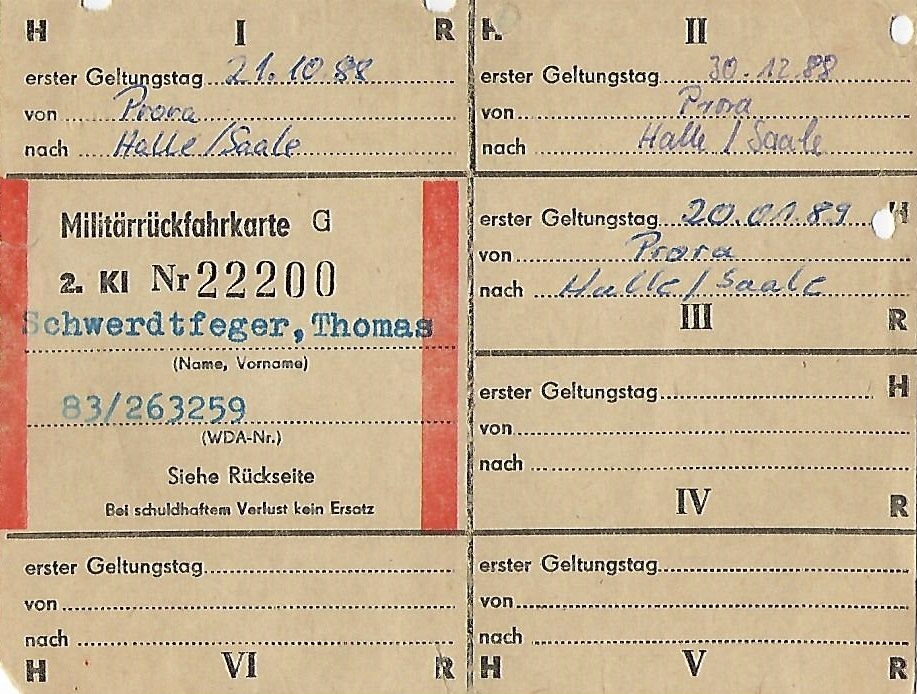 H I R
erster Geltungstag 21.10 88
von Prora
nach Halle/Saale
H II
erster Geltungstag 30.12.88
von Prora
nach Halle / Saale
Militärrückfahrkarte G
2. Kl Nr 22200
Schwerdtfeger, Thomas
(Name, Vorname)
83/263259
(WDA-Nr.)
Siehe Rückseite
Bei schuldhaftem Verlust kein Ersatz
erster Geltungstag 20.01.89 H
von Prora
nach Halle/Saale
III R
erster Geltungstag H
von
nach
IV R
erster Geltungstag
von
nach
H VI R
erster Geltungstag
von
nach
H V R